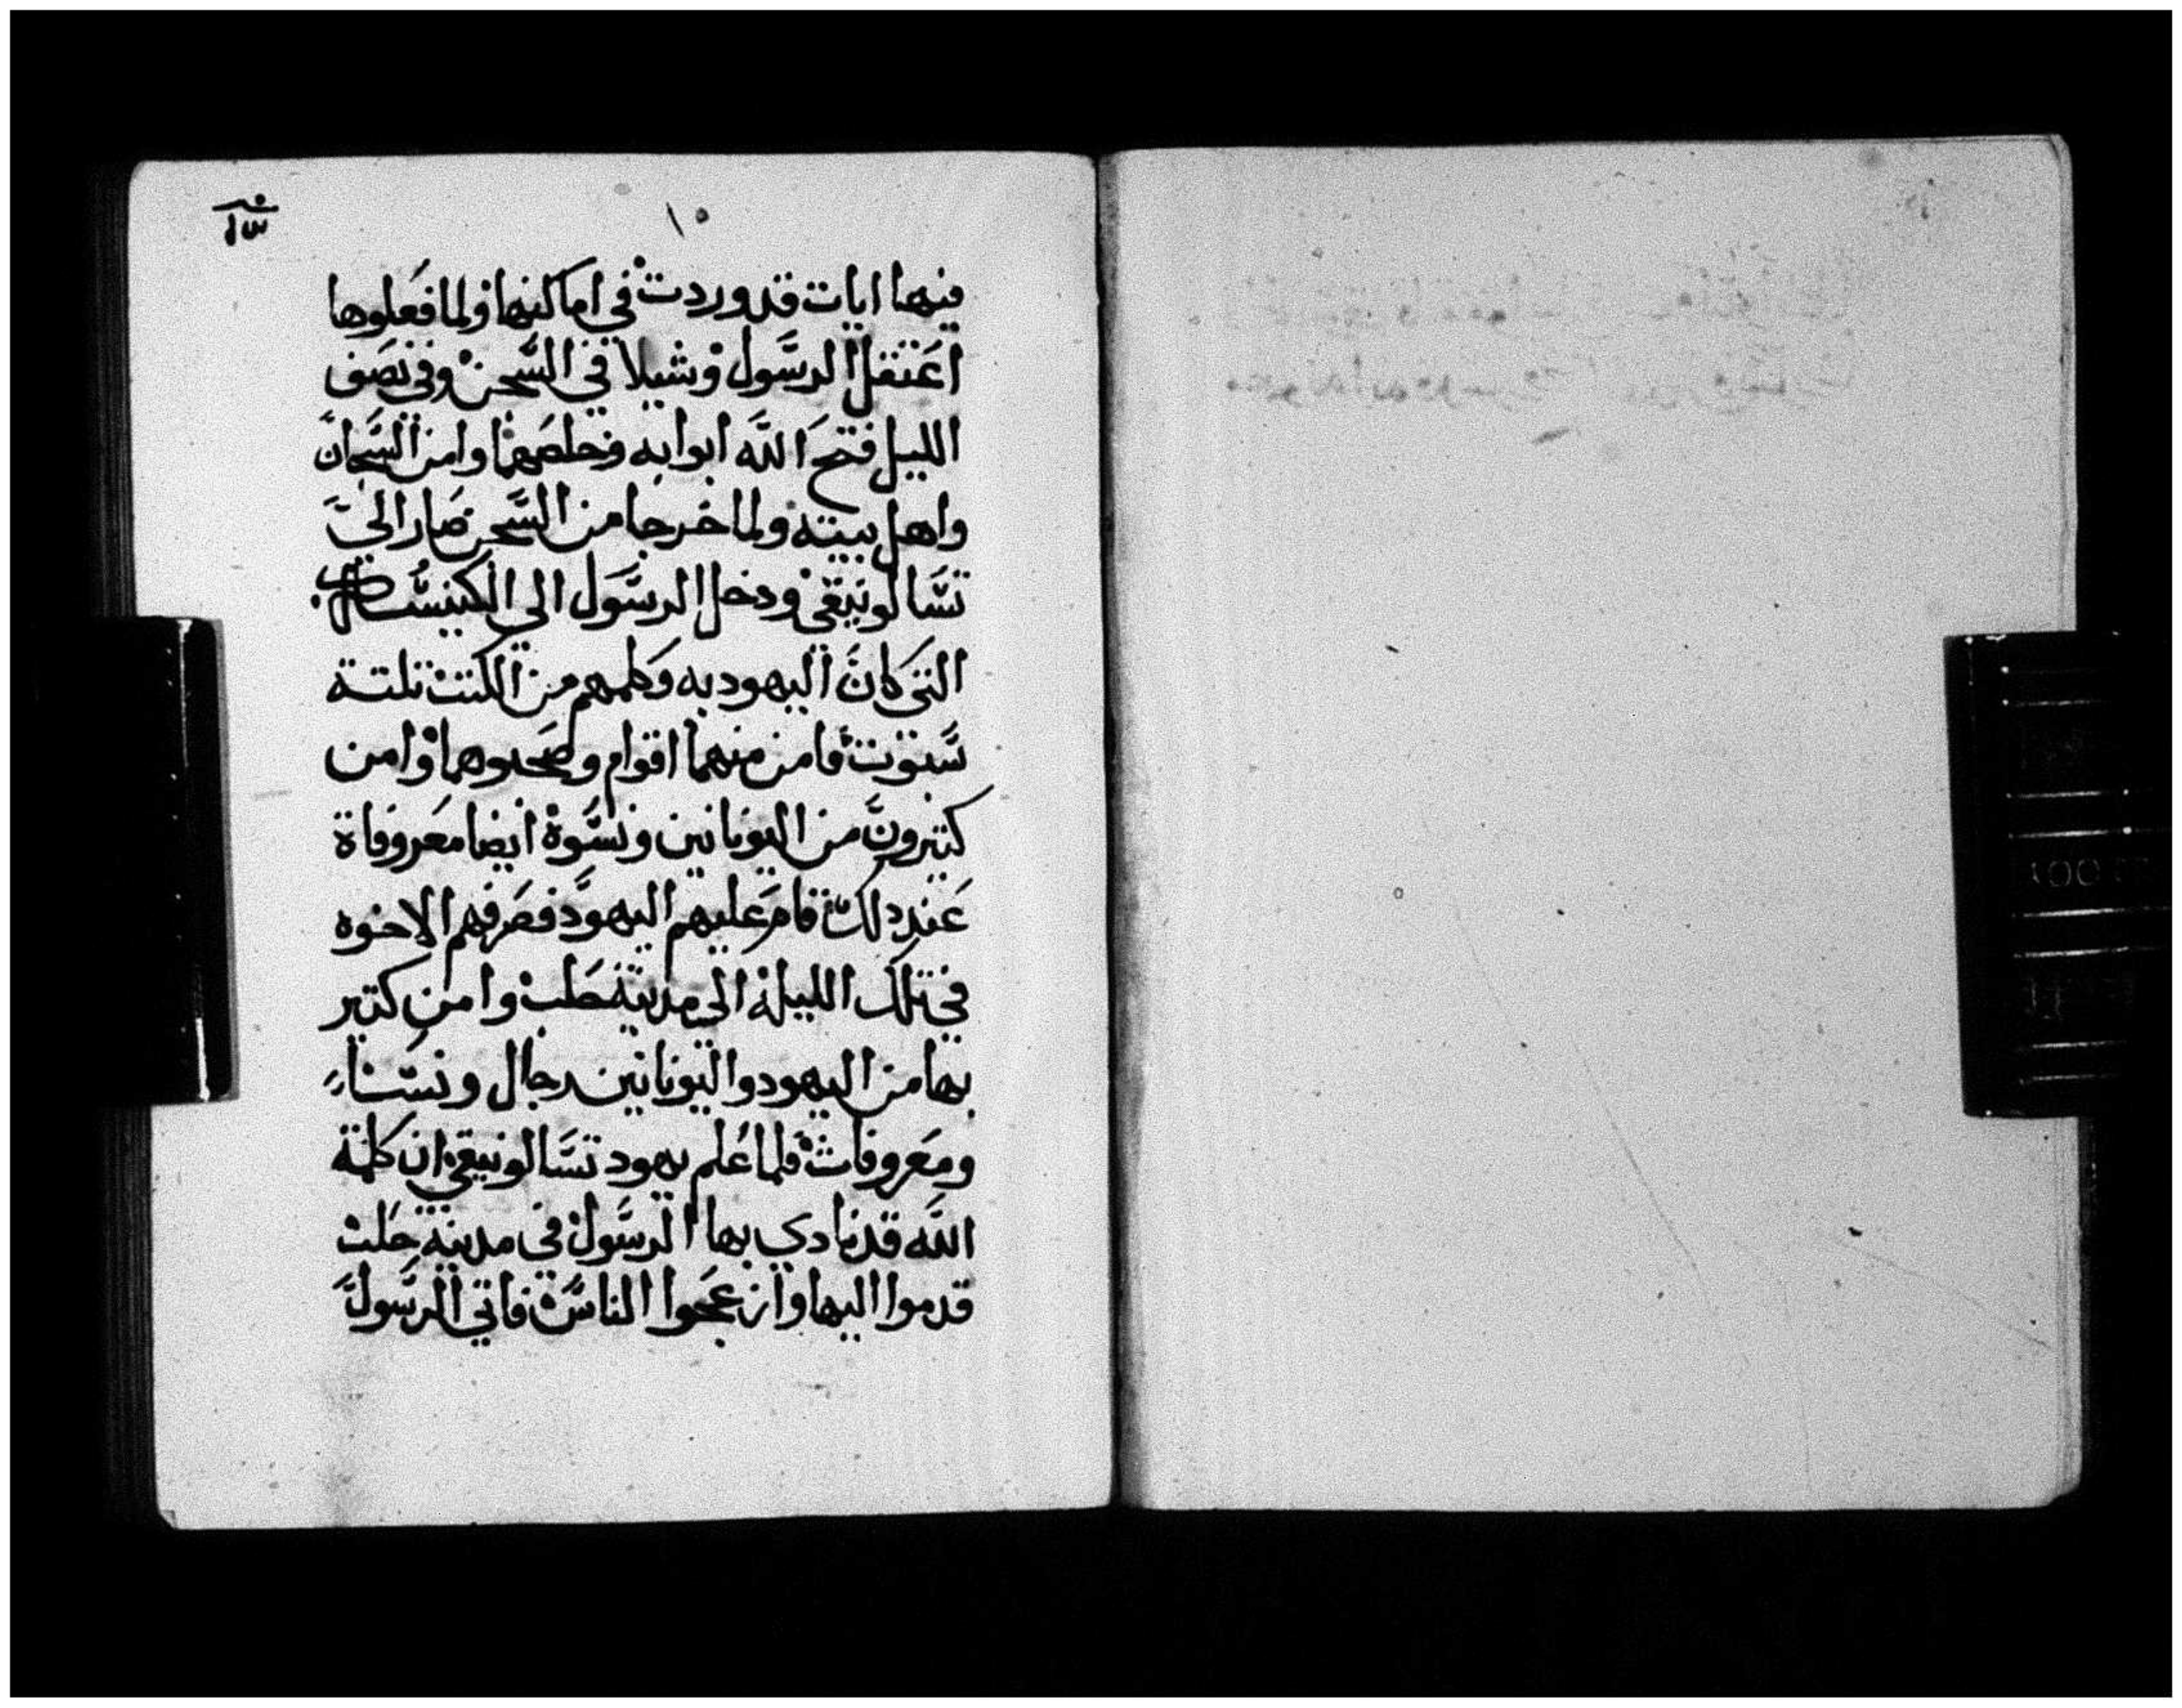 ١٥
فيها ايات قد وردت في اماكنها ولما فعلوها
اعتقل الرسول وشيلا في السجن وفي نصف
الليل فتح الله ابوابه وخلصهما وامن السجان
واهل بيته ولما خرجا من السجن صارا الي
تسالونيقي ودخل الرسول الي الكنيست
التي كان اليهود به وكلمهم من الكتب تلتة
سبوت فامن منهما اقوام وصحبوهما وامن
كتيرون من اليونانين ونسوة ايضا معروفاة
عند دلك قام عليهم اليهود فصرفهم الاخوه
في تلك الليلة الي مدينة حلب وامن كتير
بها من اليهود واليونانين رجال ونساء
ومعروفات فلما علم يهود تسالونيقي ان كلمة
الله قد نادي بها الرسول في مدينة حلب
قدموا اليها وازعجوا الناس فاتي الرسول